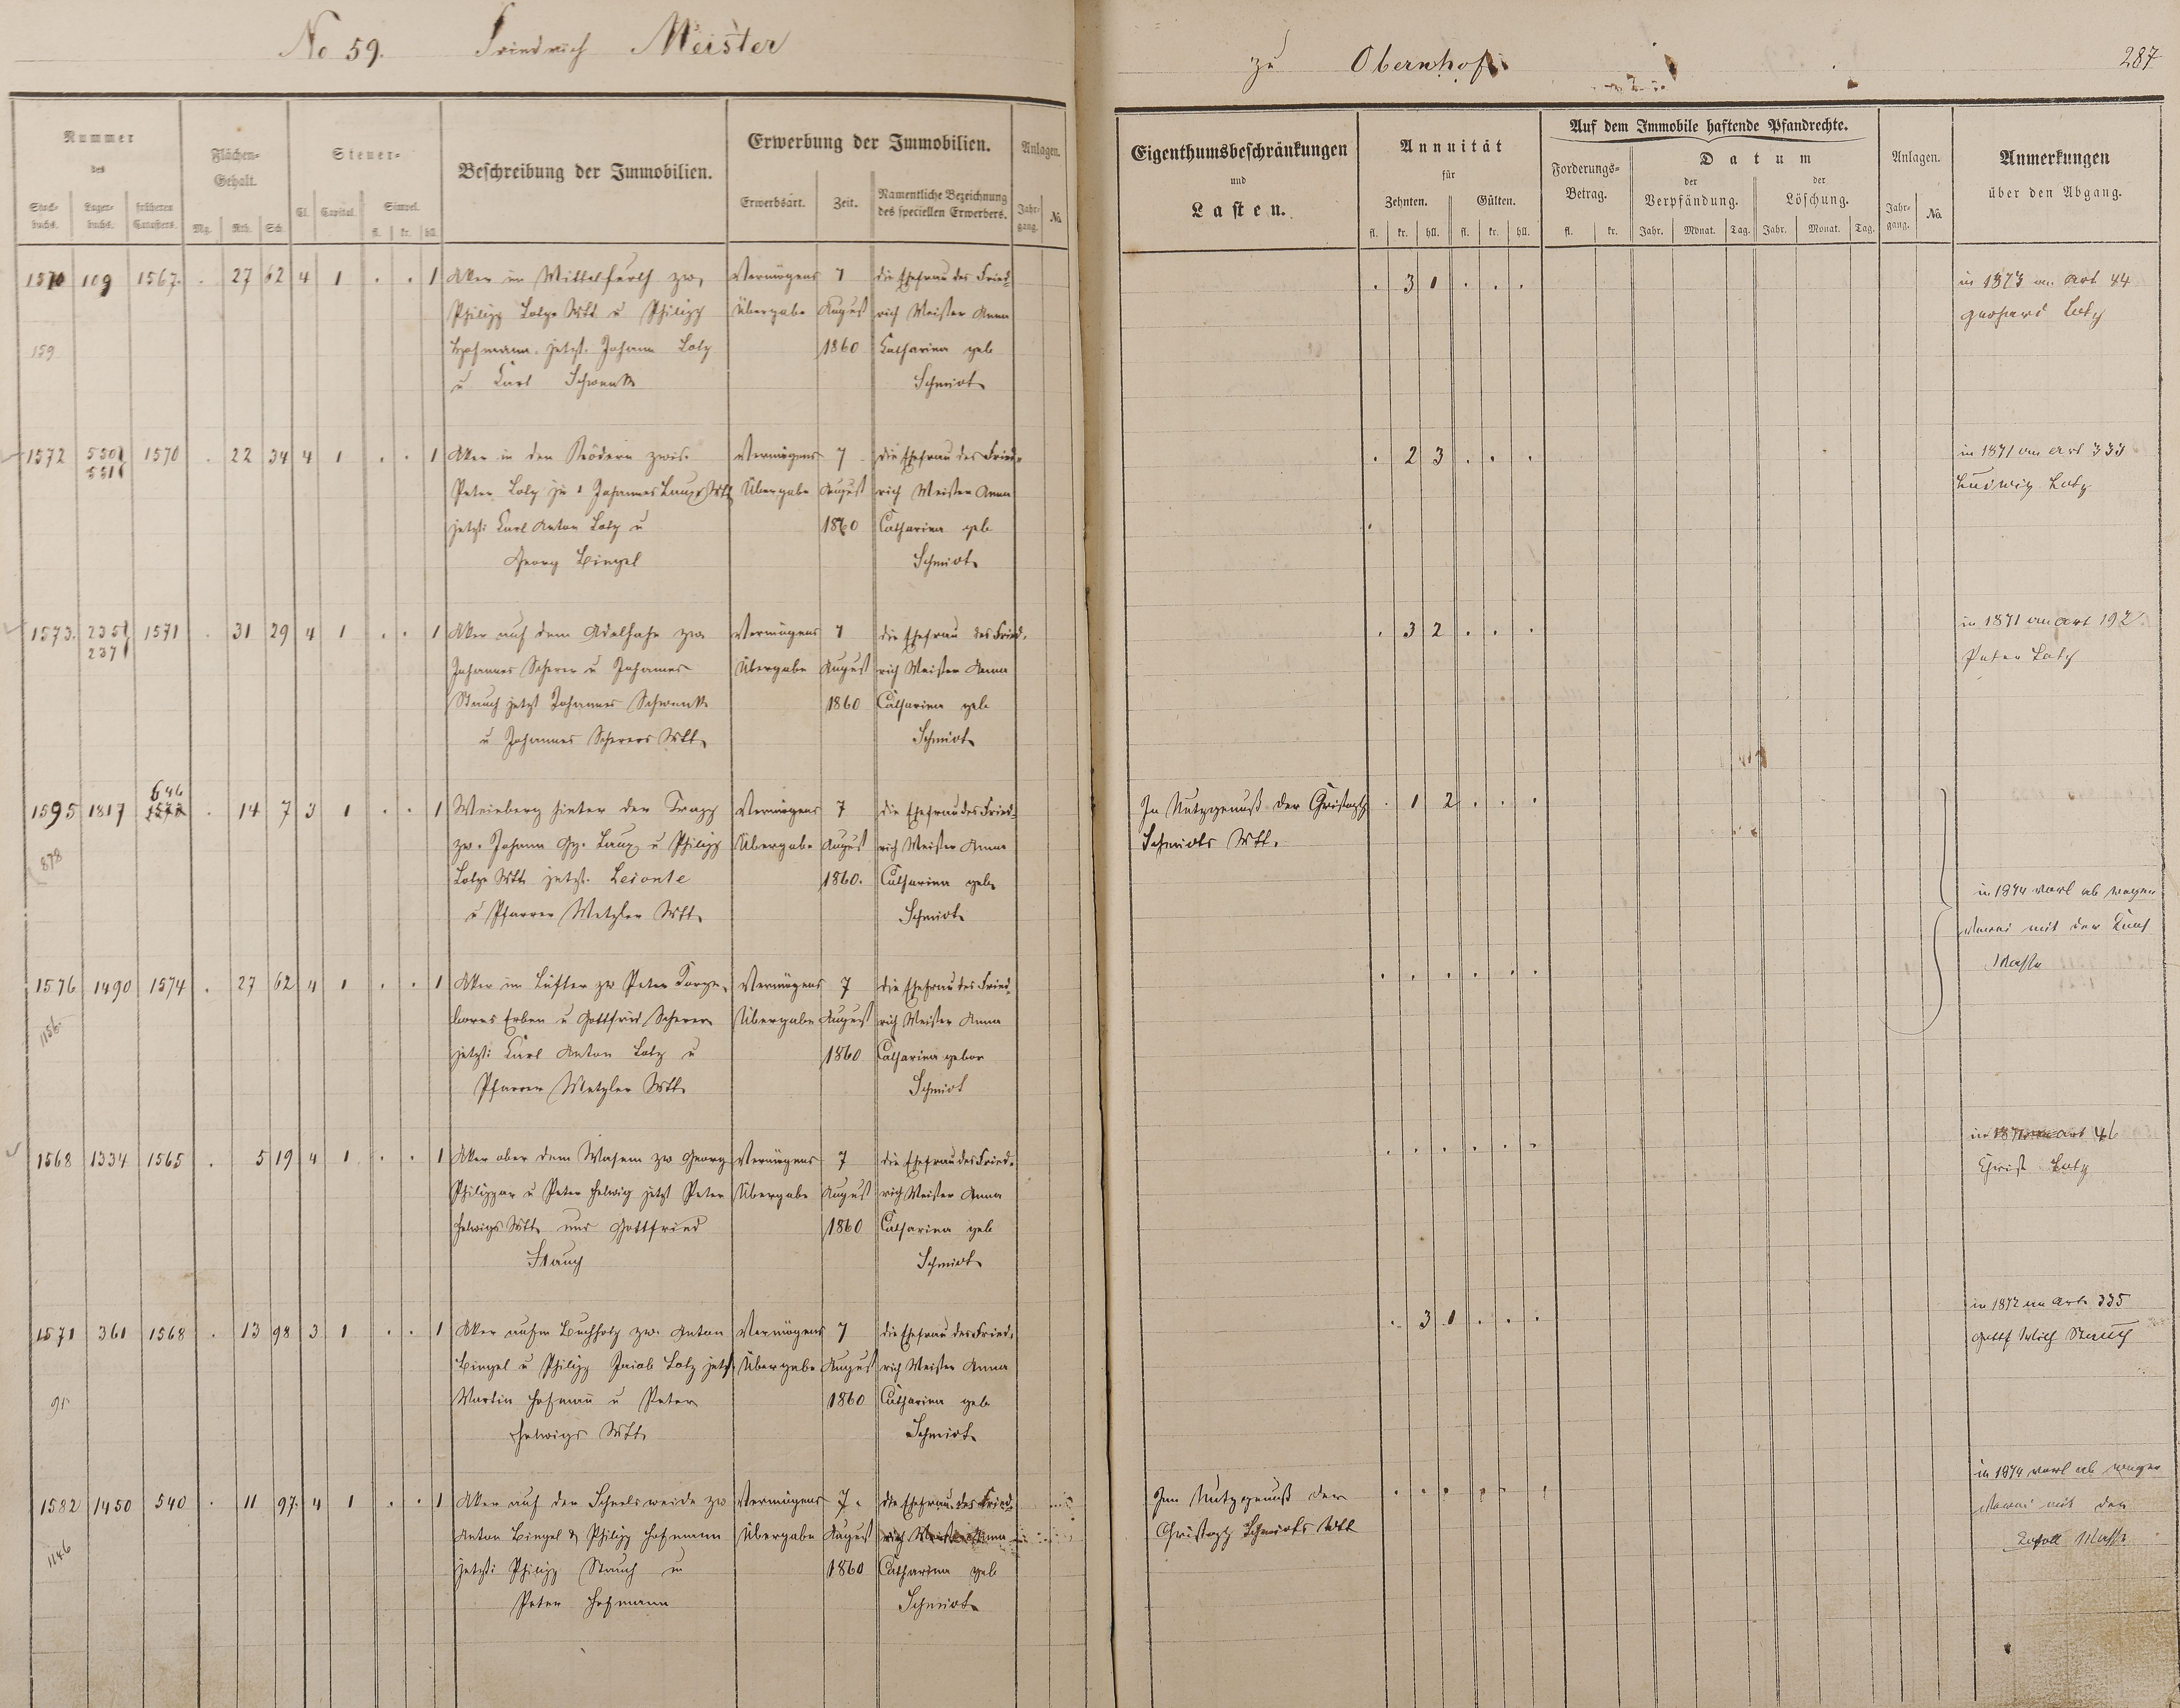 No 59. Friedrich Meister
zu Obernhof 287
Nummer des
Stock-buchs. Lager-buchs. früheren Catasters.
Flächen-Gehalt.
Mg. Rth. Sch.
Steuer-
Cl. Capital. Simpel.
fl. kr. hll.
Beschreibung der Immobilien.
Erwerbung der Immobilien.
Erwerbsart. Zeit. Namentliche Bezeichnung des speciellen Erwerbers.
Anlagen.
Jahr-gang. No.
Eigenthumsbeschränkungen
und
Lasten.
Annuität
für
Zehnten. Gülten.
fl. kr. hll. fl. kr. hll.
Auf dem Immobile haftende Pfandrechte.
Forderungs-Betrag.
fl. kr.
Datum
der Verpfändung. der Löschung.
Jahr. Monat. Tag. Jahr. Monat. Tag.
Anlagen.
Jahr-gang. No.
Anmerkungen
über den Abgang.
1570 109 1567. . 27 62 4 1 . . 1 Aker im zw, Vermögens 7 die Ehefrau des Fried- . 3 1 . . . in 1873 an Art 44
Philipp Lotze Wtt u Philipp Übergabe August rich Meister Anna Lotz
159 Hofmann. jetzt. Johann Lotz 1860 Catharina geb
u Karl Schwenk Schmidt
1572 5501 1570 . 22 34 4 1 . . 1 Aker in den Rödern zwis. Vermögens 7 die Ehefrau des Fried- . 2 3 . . . in 1871 an Art 333
5516 Peter Lotz Johannes Laux Wtt Übergabe August rich Meister Anna Ludwig Lotz
jetzt: Karl Anton Lotz u 1860 Catharina geb
Georg Bingel Schmidt
1573. 2351 1571 . 31 29 4 1 . . 1 Aker auf dem zw Vermögens 7 die Ehefrau des Fried- . 3 2 . . . in 1871 an Art 192
2371 Johannes Scherer u Johannes Übergabe August rich Meister Anna Peter Lotz
Stauch jetzt Johannes Schwenk 1860 Catharina geb
u Johannes Scherers Wtt Schmidt
646
1595 1817 1572 . 14 7 3 1 . . 1 Weinberg hinter der Trapp Vermögens 7 die Ehefrau des Fried- Im Nutzgenuß der Christoph . 1 2 . . .
zw. Johann Gg. Laux u Philipp Übergabe August rich Meister Anna Schmidts Wtt.
878 Lotze Wtt jetzt. Leionte 1860. Catharina geb in 1874 ab wegen
u Pfarrer Metzler Wtt Schmidt mit der
Masse
1576 1490 1574 . 27 62 4 1 . . 1 Aker im zw Peter Vermögens 7 die Ehefrau des Fried- . . . . . .
1156. Erben u Gottfried Scherer Übergabe August rich Meister Anna
jetzt: Karl Anton Lotz u 1860 Catharina gebor
Pfarrer Metzler Wtt Schmidt
1568 1334 1565 . 5 19 4 1 . . 1 Aker ober dem Wasem zw Georg Vermögens 7 die Ehefrau des Fried- . . . . . . in 1871 an Art 46
Philippar u Peter Helwig jetzt Peter Übergabe August rich Meister Anna Christ Lotz
Helwigs Wtt und Gottfried 1860 Catharina geb
Stauch Schmidt
1571 361 1568 . 13 98 3 1 . . 1 Aker aufm Buchholz zw. Anton Vermögens 7 die Ehefrau des Fried- . 3 1 . . . in 1872 an Art. 335
Bingel u Philipp Jacob Lotz jetzt Übergabe August rich Meister Anna Gottf Wilh Stauch
91 Martin Hofmann u Peter 1860 Catharina geb
Helwigs Wtt Schmidt
1582 1450 540 . 11 97. 4 1 . . 1 Aker auf der zw Vermögens 7. die Ehefrau des Fried- Im Nutzgenuß der . . . . . . in 1874 ab wegen
1146 Anton Bingel & Philipp Hofmann Übergabe August rich Meister Anna Christoph Schmidts Wtt mit der
jetzt: Philipp Stauch u 1860 Catharina geb Masse
Peter Hofmann Schmidt